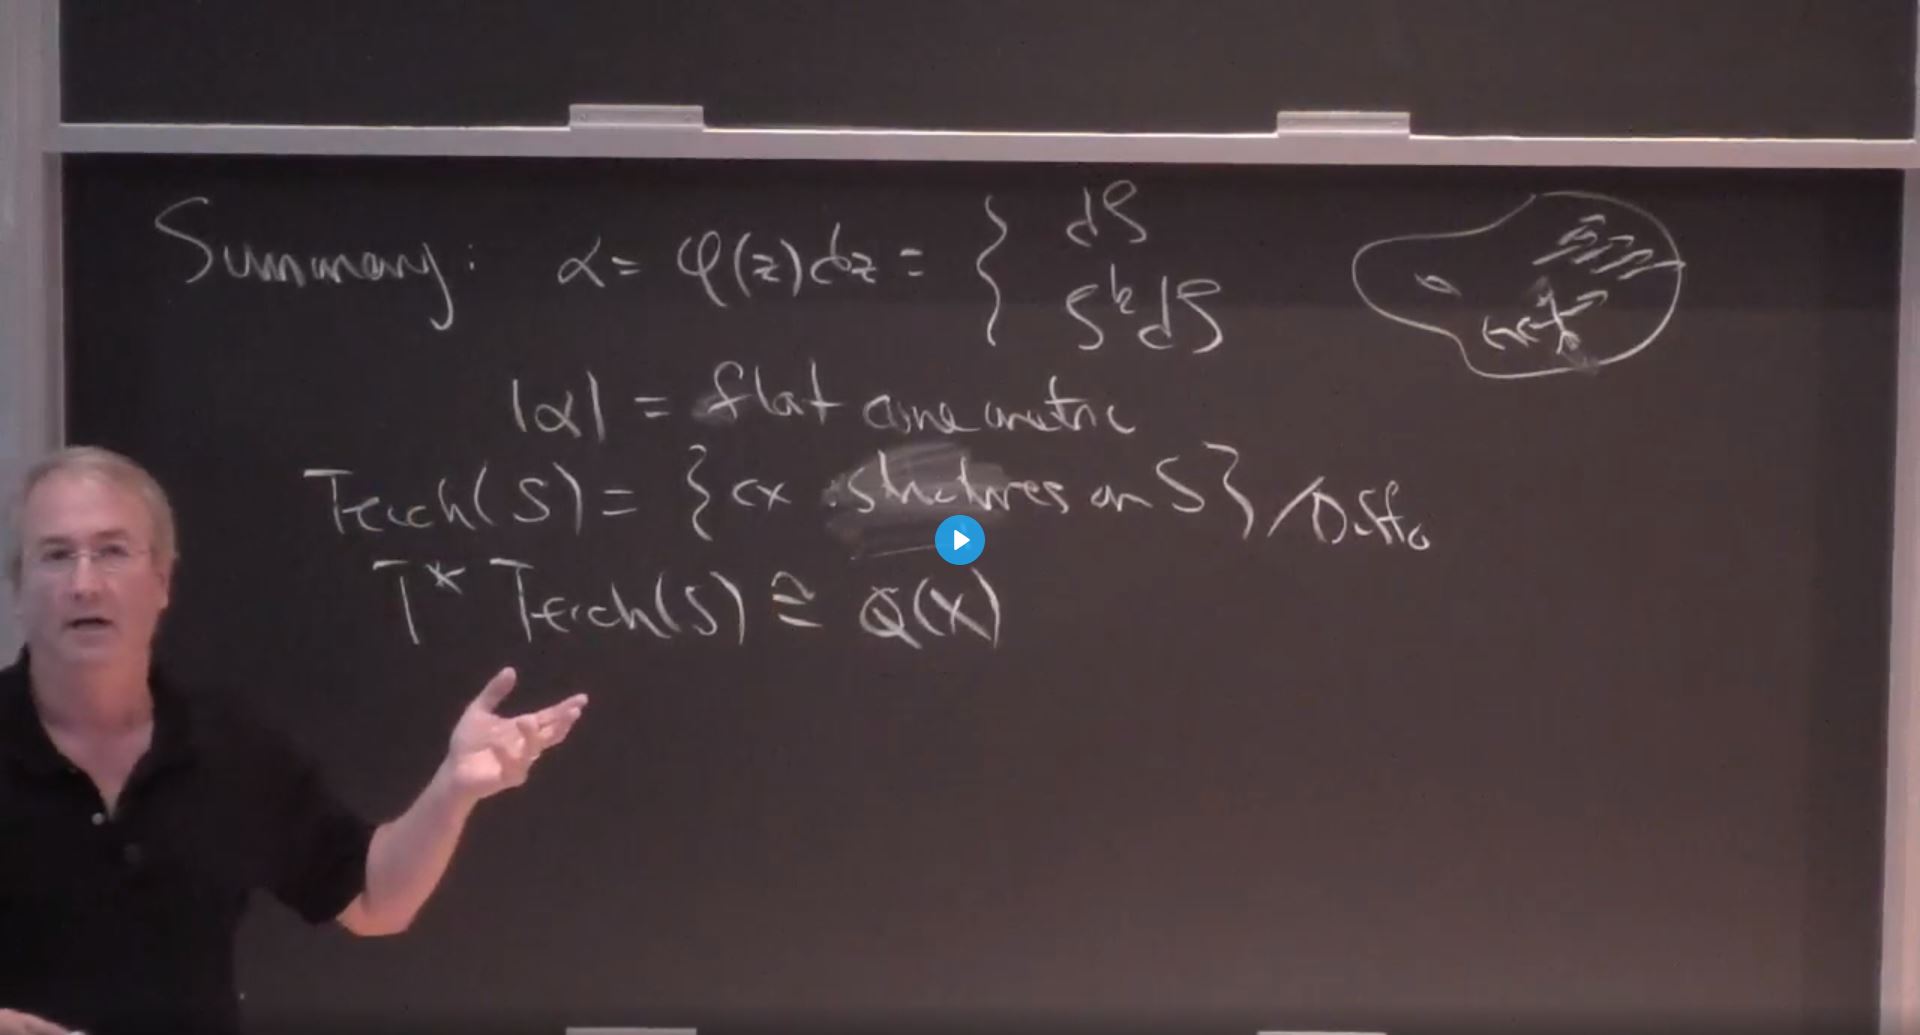 Summary: α = φ(z)dz = { dζ
ζᵏdζ
|α| = flat cone metric
Teich(S) = {cx structures on S} / Diff₀
T* Teich(S) ≅ Q(X)